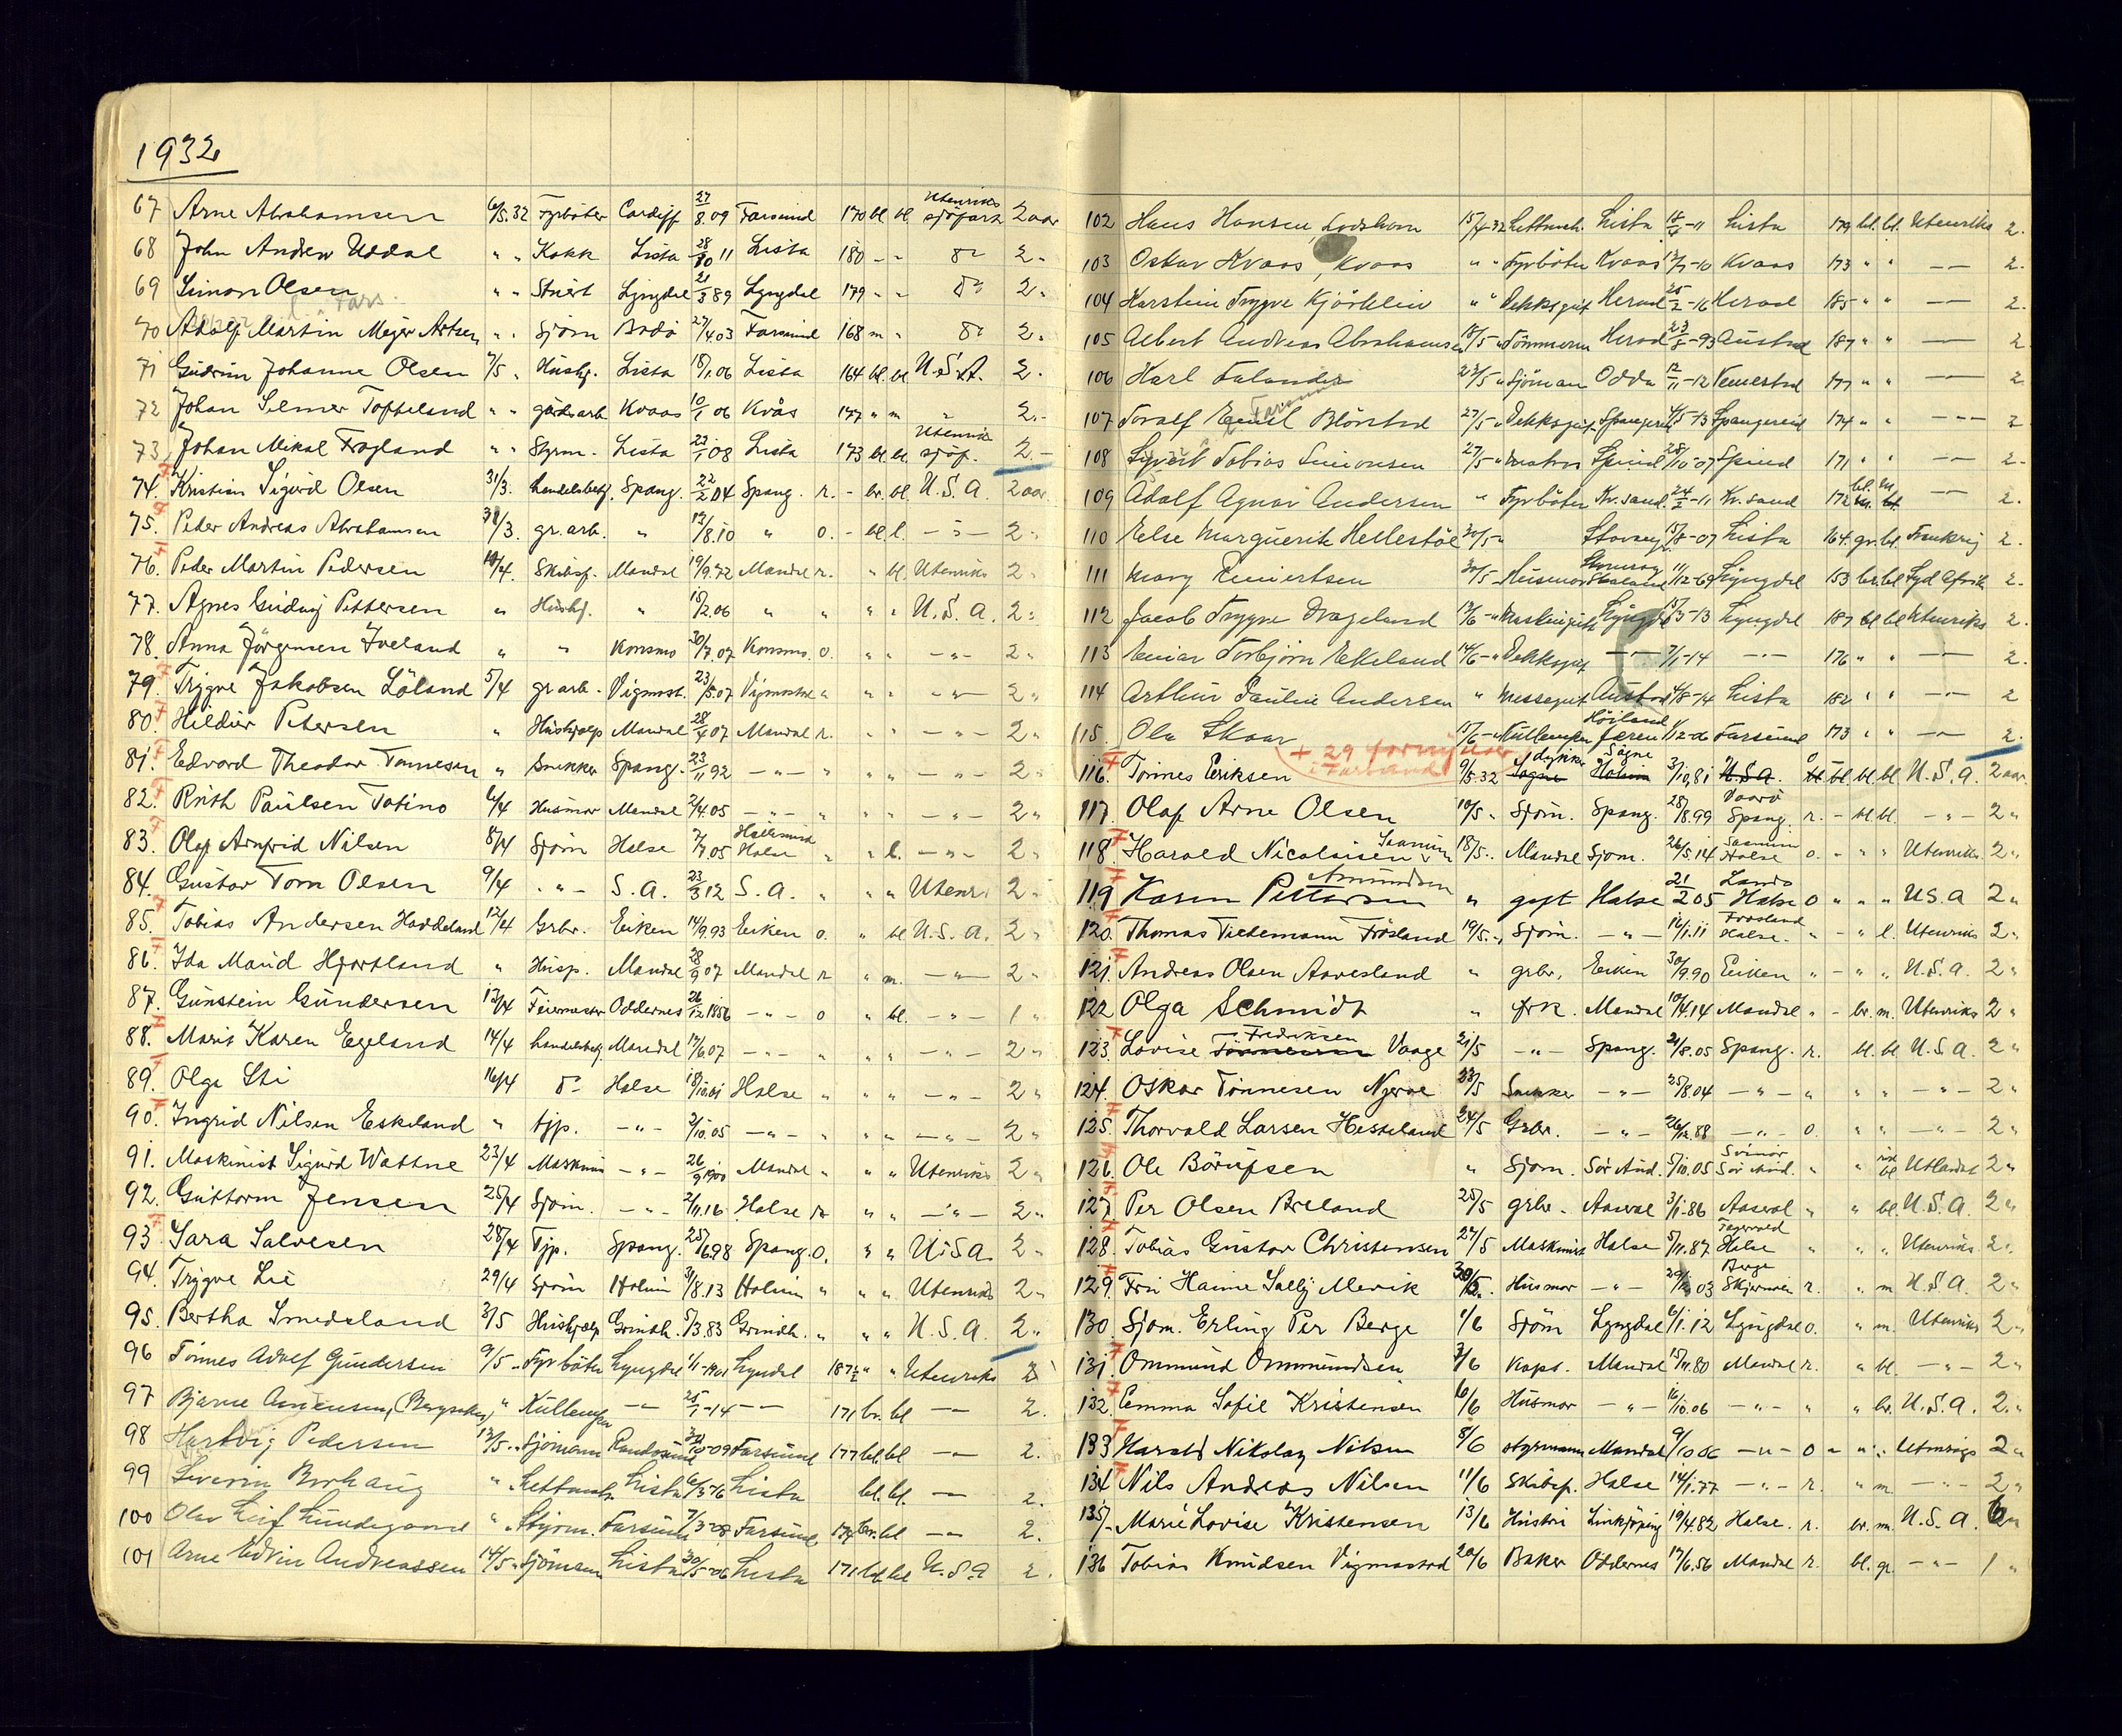 1932
67 Arne Abrahamsen 6/5.32 Fyrböter Cardiff 27/8.09 Farsund 170 bl. bl. Utenriks sjöfart 2 aar
68 John Andrew Uddal " " Kokk Lista 28/10 11 Lista 180 - - do 2 "
69 Simon Olsen " " Stuert Lyngdal 21/3 89 Lyngdal 179 " " do 2 "
70 Adolf Martin Mejer Artsen " " Sjöm Bodö 27/4.03 Farsund 168 m " do 2 "
71 Gudrun Johanne Olsen 7/5 " Hushj. Lista 18/1.06 Lista 164 bl. bl. U.S.A. 2 "
72 Johan Selmer Tofteland " " gårdsarb Kvaas 10/1 06 Kvås 177 " m " 2 "
73 Johan Mikal Frogland " " Styrm. Lista 22/1 08 Lista 173 bl. bl. Utenriks sjöf. 2 -
74. Kristian Sigurd Olsen 31/3. handelsbetj. Spang. 22/2 04 Spang. r. - br. bl. U.S.A. 2 aar
75. Peder Andreas Abrahamsen 31/3. gr. arb. " 12/8.10 " o. - bl. l. - " - 2 "
76. Peder Martin Pedersen 19/4. Skibsf. Mandal 19/9.72 Mandal r. " bl. Utenriks 2 "
77. Agnes Gudwy Pettersen " Hushj. " 15/2.06 " " " " U.S.A. 2 "
78. Anna Jörgensen Iveland " " Konsmo 30/7.07 Konsmo. o. " " - " - 2 "
79. Trygve Jakobsen Löland 5/4 gr arb. Vigmost. 23/5 07 Vigmostad " " " - " - 2 "
80. Hildur Petersen " Hushjælp Mandal 28/4 07 Mandal r. " " - " - 2 "
81. Edvard Theodor Tönnesen " Snekker Spang. 23/11 92 - " - " " " - " - 2 "
82. Ruth Paulsen Tobino 6/4 Husmor Mandal 2/4.05 - " - " " " - " - 2 "
83. Olaf Arnfrid Nilsen 8/4 Sjöm Halse 7/7.05 Halse " " l. - " - 2 "
84. Gustav Tom Olsen 9/4 - " - S. A. 23/3 12 S. A. " " " Utenr. 2 "
85. Tobias Andersen Haddeland 12/4 Grbr. Eiken 14/9.93 Eiken o. " bl U.S.A. 2 "
86. Ida Maud Hjortland " Husp. Mandal 28/9 07 Mandal r " m. - " - 2 "
87. Gunstein Gundersen 12/4 Feiermester Oddernes 26/12 1856 - " - o " bl. - " - 1 "
88. Marit Karen Egeland 14/4 handelsbetj Mandal 17/6.07 - " - " " " - " - 2 "
89. Olga Lie 16/4 do Halse 18/10.01 Halse " " " - " - 2 "
90. Ingrid Nilsen Eskeland " tjp. - " - 2/10.05 - " - " " " - " - 2 "
91. Maskinist Sigurd Wattne 23/4 Maskinis - " - 26/9 1900 Mandal " " " Utenriks 2 "
92. Guttorm Jensen 25/4 Sjöm. - " - 2/11.16 Halse r " " - " - 2 "
93. Sara Salvesen 28/4 Tjp. Spang. 25/6 98 Spang. o. " " U.S.A. 2 "
94. Trygve Lie 29/4 Sjöm Holum 31/8.13 Holum " " " Utenriks 2 "
95. Bertha Smedsland 3/5 Hushjælp Grindh. 5/3.83 Grindh. " " " U.S.A. 2 "
96 Tönnes Adolf Gundersen 9/5 - Fyrböter Lyngdal 1/11-1901 Lyngdal 187½ " " Utenriks 2
97 Bjarne (Bergsaker) " Kullemper - - 25/1-14 - - 171 br. bl - - 2.
98 Hartvig Pedersen 12/5 - Sjömann Randesund -09 Farsund 177 bl. bl - - 2.
99 Severin Borhaug " Lettmatr. Lista Lista bl. bl. - - 2.
100 Olav Leif Lundegaard " Styrm. Farsund 7/3-08 Farsund 179 br. bl - - 2.
101 Arne Edvin Andreassen 14/5 - Sjömann Lista 30/5-06 Lista 171 bl. bl U.S.A 2.
102 Hans Hansen, Lodshavn 15/4-32 Lettmatr. Lista -11 Lista 179 bl. bl. Utenriks 2.
103 Oskar Kvaas, Kvaas " " Fyrböter Kvaas -10 Kvaas 173 " " - - 2.
104 Karstein Trygve Kjörklein " " Dekksgut Herad 25/2-16 Herad 185 " " - - 2.
105 Albert Andreas Abrahamsen 18/5 " Tömmerm Herad 23/8-93 Austad 187 " " - - 2
106 Karl Falander 23/5 " Sjömann Odda 12/11-12 Vennesla 177 " " - - 2
107 Toralf Emil Blörstad 27/5 " Dekksgut Spangereid 4/5-13 Spangereid 174 " " - - - 2
108 Sigvert Tobias Simonsen 27/5 - " Matros Spind 28/10-07 Spind 171 " " - - 2.
109 Adolf Agnar Andersen " Fyrböter Kr. sand 24/2-11 Kr. sand 172 bl. bl. - - 2.
110 Else Marguerite Hellestöl 30/5 - " Stavang. 15/8-07 Lista 164. gr. bl. Frankrig 2.
111 Mary Reniertsen 30/5 - Husmor 11/12-69 Lyngdal 153 br. bl Syd Afrika 2.
112 Jacob Trygve Drageland 12/6 - " Maskingutt Lyngdal 15/3-13 Lyngdal 187 bl bl Utenriks 2.
113 Einar Torbjörn Ekeland 14/6 - " Dekksgut - - 7/1-14 - - 176 " " - - 2.
114 Arthur Paulin Andersen " Messegut Austad 4/8-14 Lista 182 " " - - 2
115. Ola Skaar 15/6 - " Kullemper Höiland Jæren 1/12-06 Farsund 173 " " - - 2.
+ 29 fornyelser i Farsund
116. Tönnes Eriksen 9/5.32 dykker Sogne Sögne Holum 3/10.81 U.S.A. o bl. bl. bl U.S.A. 2 aar.
117. Olaf Arne Olsen 10/5 " Sjöm. Spang. 28/8.99 Spang. r. - bl. bl. - " - 2 "
118. Harald Nicolaisen 18/5 - Mandal Sjöm. 26/5.14 Halse o. - " " Utenriks 2 "
119 Karen Pettersen Amundsen " gift Halse 21/2 05 Halse o " " " USA 2 "
120. Thomas Tidemann Frösland 19/5 - Sjöm. - " - 16/1.11 Frösland Halse. " - " l. Utenriks 2 "
121. Andreas Olsen Aavesland " grbr. Eiken 30/9.90 Eiken " - " " U.S.A. 2 "
122 Olga Schmidt " frk. Mandal 10/4.14 Mandal " - br. m. Utenriks 2 "
123. Lovise Fredriksen Vaage 21/5 - " - Spang. 21/8.05 Spang. r. bl. bl U.S.A. 2 "
124. Oskar Tönnesen Njerve 23/5 Snekker - " - 25/8.04 - " - " " " - " - 2 "
125. Thorvald Larsen Hesseland 24/5 Grbr. - " - 26/12.88 - " - o. " " - " - 2 "
126. Ole Börufsen " Sjöm. Sör Aud. 5/10.05 Svinör Sör Aud. " " bl Utlandet 2 "
127. Per Olsen Breland 25/5 grbr. Aaseral 3/1-86 Aaseral " " bl. U.S.A. 2 "
128. Tobias Gustav Christensen 27/5 Maskinist Halse 5/11.87 Halse " " " Utenriks 2 "
129. Fru Hanne Sally Mervik 30/5. Husmor - " - 03 Berge Skjernøen r. " m U.S.A. 2 "
130. Sjöm. Erling Per Berge 1/6 Sjöm Lyngdal 6/1.12 Lyngdal o. " m. Utenriks 2 "
131. Ommund Ommundsen 3/6 Kapt. Mandal 15/11.80 Mandal r. " bl. - " - 2 "
132. Emma Sofie Kristensen 6/6 Husmor - " - 16/10.06 - " - " " br. U.S.A. 2 "
133 Harald Nikolay Nilsen 8/6 styrmann Mandal 9/10 06 - " - o - " " Utenriks 2 "
134 Nils Andreas Nilsen 11/6 Skibsf. Halse 14/1.77 - " - r. " m. - " - 2 "
135. Marie Lovise Kristensen 13/6 Hustru Linkjöping 19/4.82 Halse. r. br. m. U.S.A. 2 "
136 Tobias Knudsen Vigmostad 20/6 Baker Oddernes 17/6.56 Mandal r. bl. gr. - " - 1 "